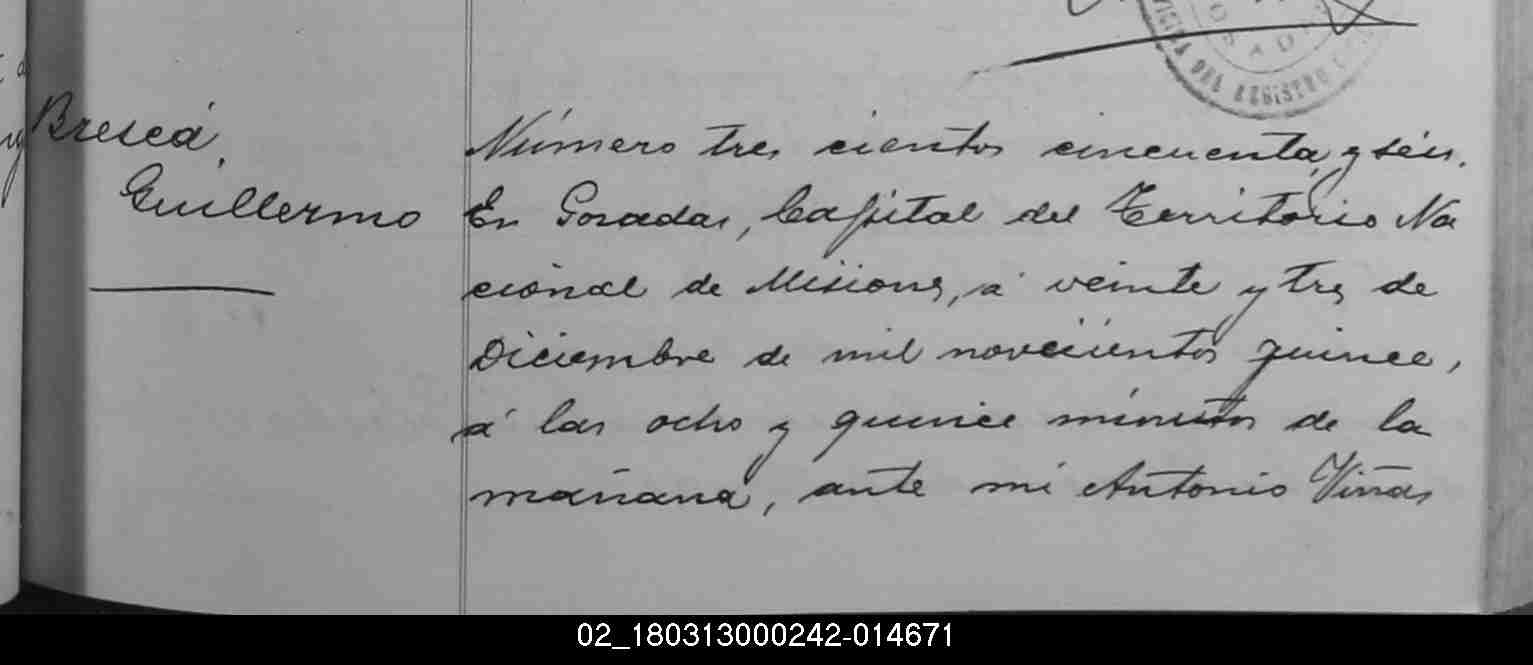 DEL REGISTRO
Brescá,
Guillermo
Número tres cientos cincuenta y séis.
En Posadas, Capital del Territorio Na
cional de Misiones, á veinte y tres de
Diciembre de mil novecientos quince,
á las ocho y quince minutos de la
mañana, ante mi Antonio Viñas
02_180313000242-014671